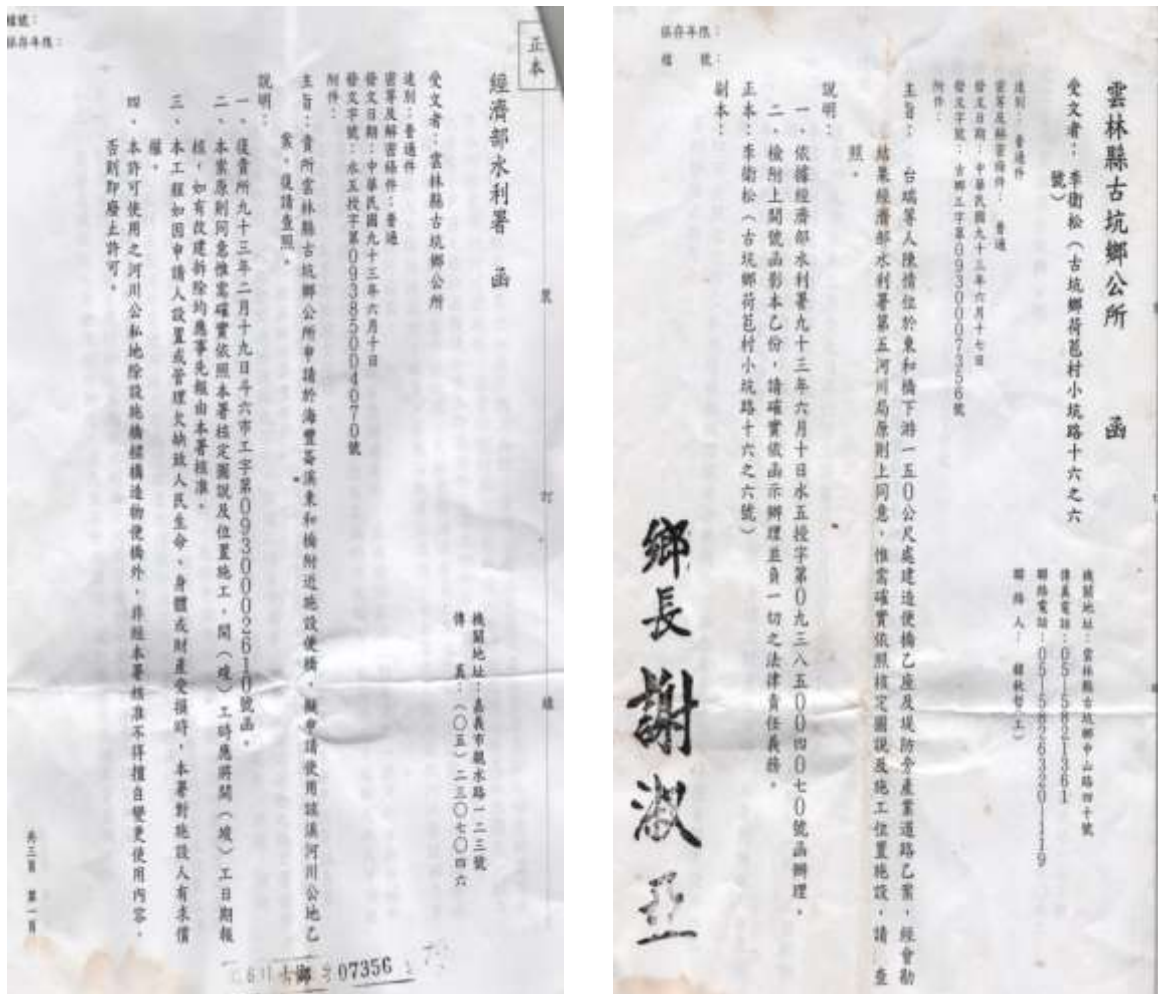 檔號：
保存年限：
正本
經濟部水利署　函
機關地址：嘉義市親水路一二三號
傳　真：（〇五）二三〇七〇四六
受文者：雲林縣古坑鄉公所
速別：普通件
密等及解密條件：普通
發文日期：中華民國九十三年六月十日
發文字號：水五授字第09385004070號
附件：
主旨：貴所雲林縣古坑鄉公所申請於海豐崙溪東和橋附近施設便橋，擬申請使用該溪河川公地乙
案，復請查照。
說明：
一、復貴所九十三年二月十九日斗六市工字第0930002610號函。
二、本案原則同意惟需確實依照本署核定圖說及位置施工，開（竣）工時應將開（竣）工日期報
核，如有改建拆除均應事先報由本署核准。
三、本工程如因申請人設置或管理欠缺致人民生命、身體或財產受損時，本署對施設人有求償
權。
四、本許可使用之河川公私地除設施橋樑構造物便橋外，非經本署核准不得擅自變更使用內容，
否則即廢止許可。
裝
訂
線
共三頁　第一頁
07356
保存年限：
檔　號：
雲林縣古坑鄉公所　函
機關地址：雲林縣古坑鄉中山路四十號
傳真電話：05-5821361
聯絡電話：05-5826320-119
聯絡人：
受文者：李衛松（古坑鄉荷苞村小坑路十六之六
號）
速別：普通件
密等及解密條件：普通
發文日期：中華民國九十三年六月十七日
發文字號：古鄉工字第0930007356號
附件：
主旨：台端等人陳情位於東和橋下游一五0公尺處建造便橋乙座及堤防旁產業道路乙案，經會勘
結果經濟部水利署第五河川局原則上同意，惟需確實依照核定圖說及施工位置施設，請　查
照。
說明：
一、依據經濟部水利署九十三年六月十日水五授字第0九三八五00四0七0號函辦理。
二、檢附上開號函影本乙份，請確實依函示辦理並負一切之法律責任義務。
正本：李衛松（古坑鄉荷苞村小坑路十六之六號）
副本：
鄉長 謝淑亞